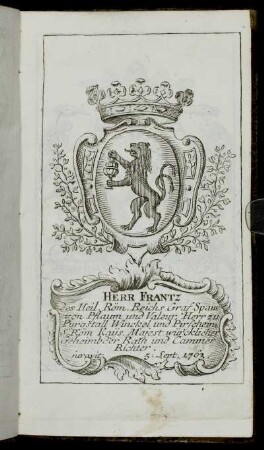 HERR FRANTZ
des Heil. Röm. Reichs Graf Spaur
von Pflaum und Valeur, Herr zu
Burgstall Winckel und Pirscheim
Röm. Kaÿs. Maÿest. würcklicher
Geheimbder Rath und Cammer
Richter.
iuravit 5. Sept. 1763